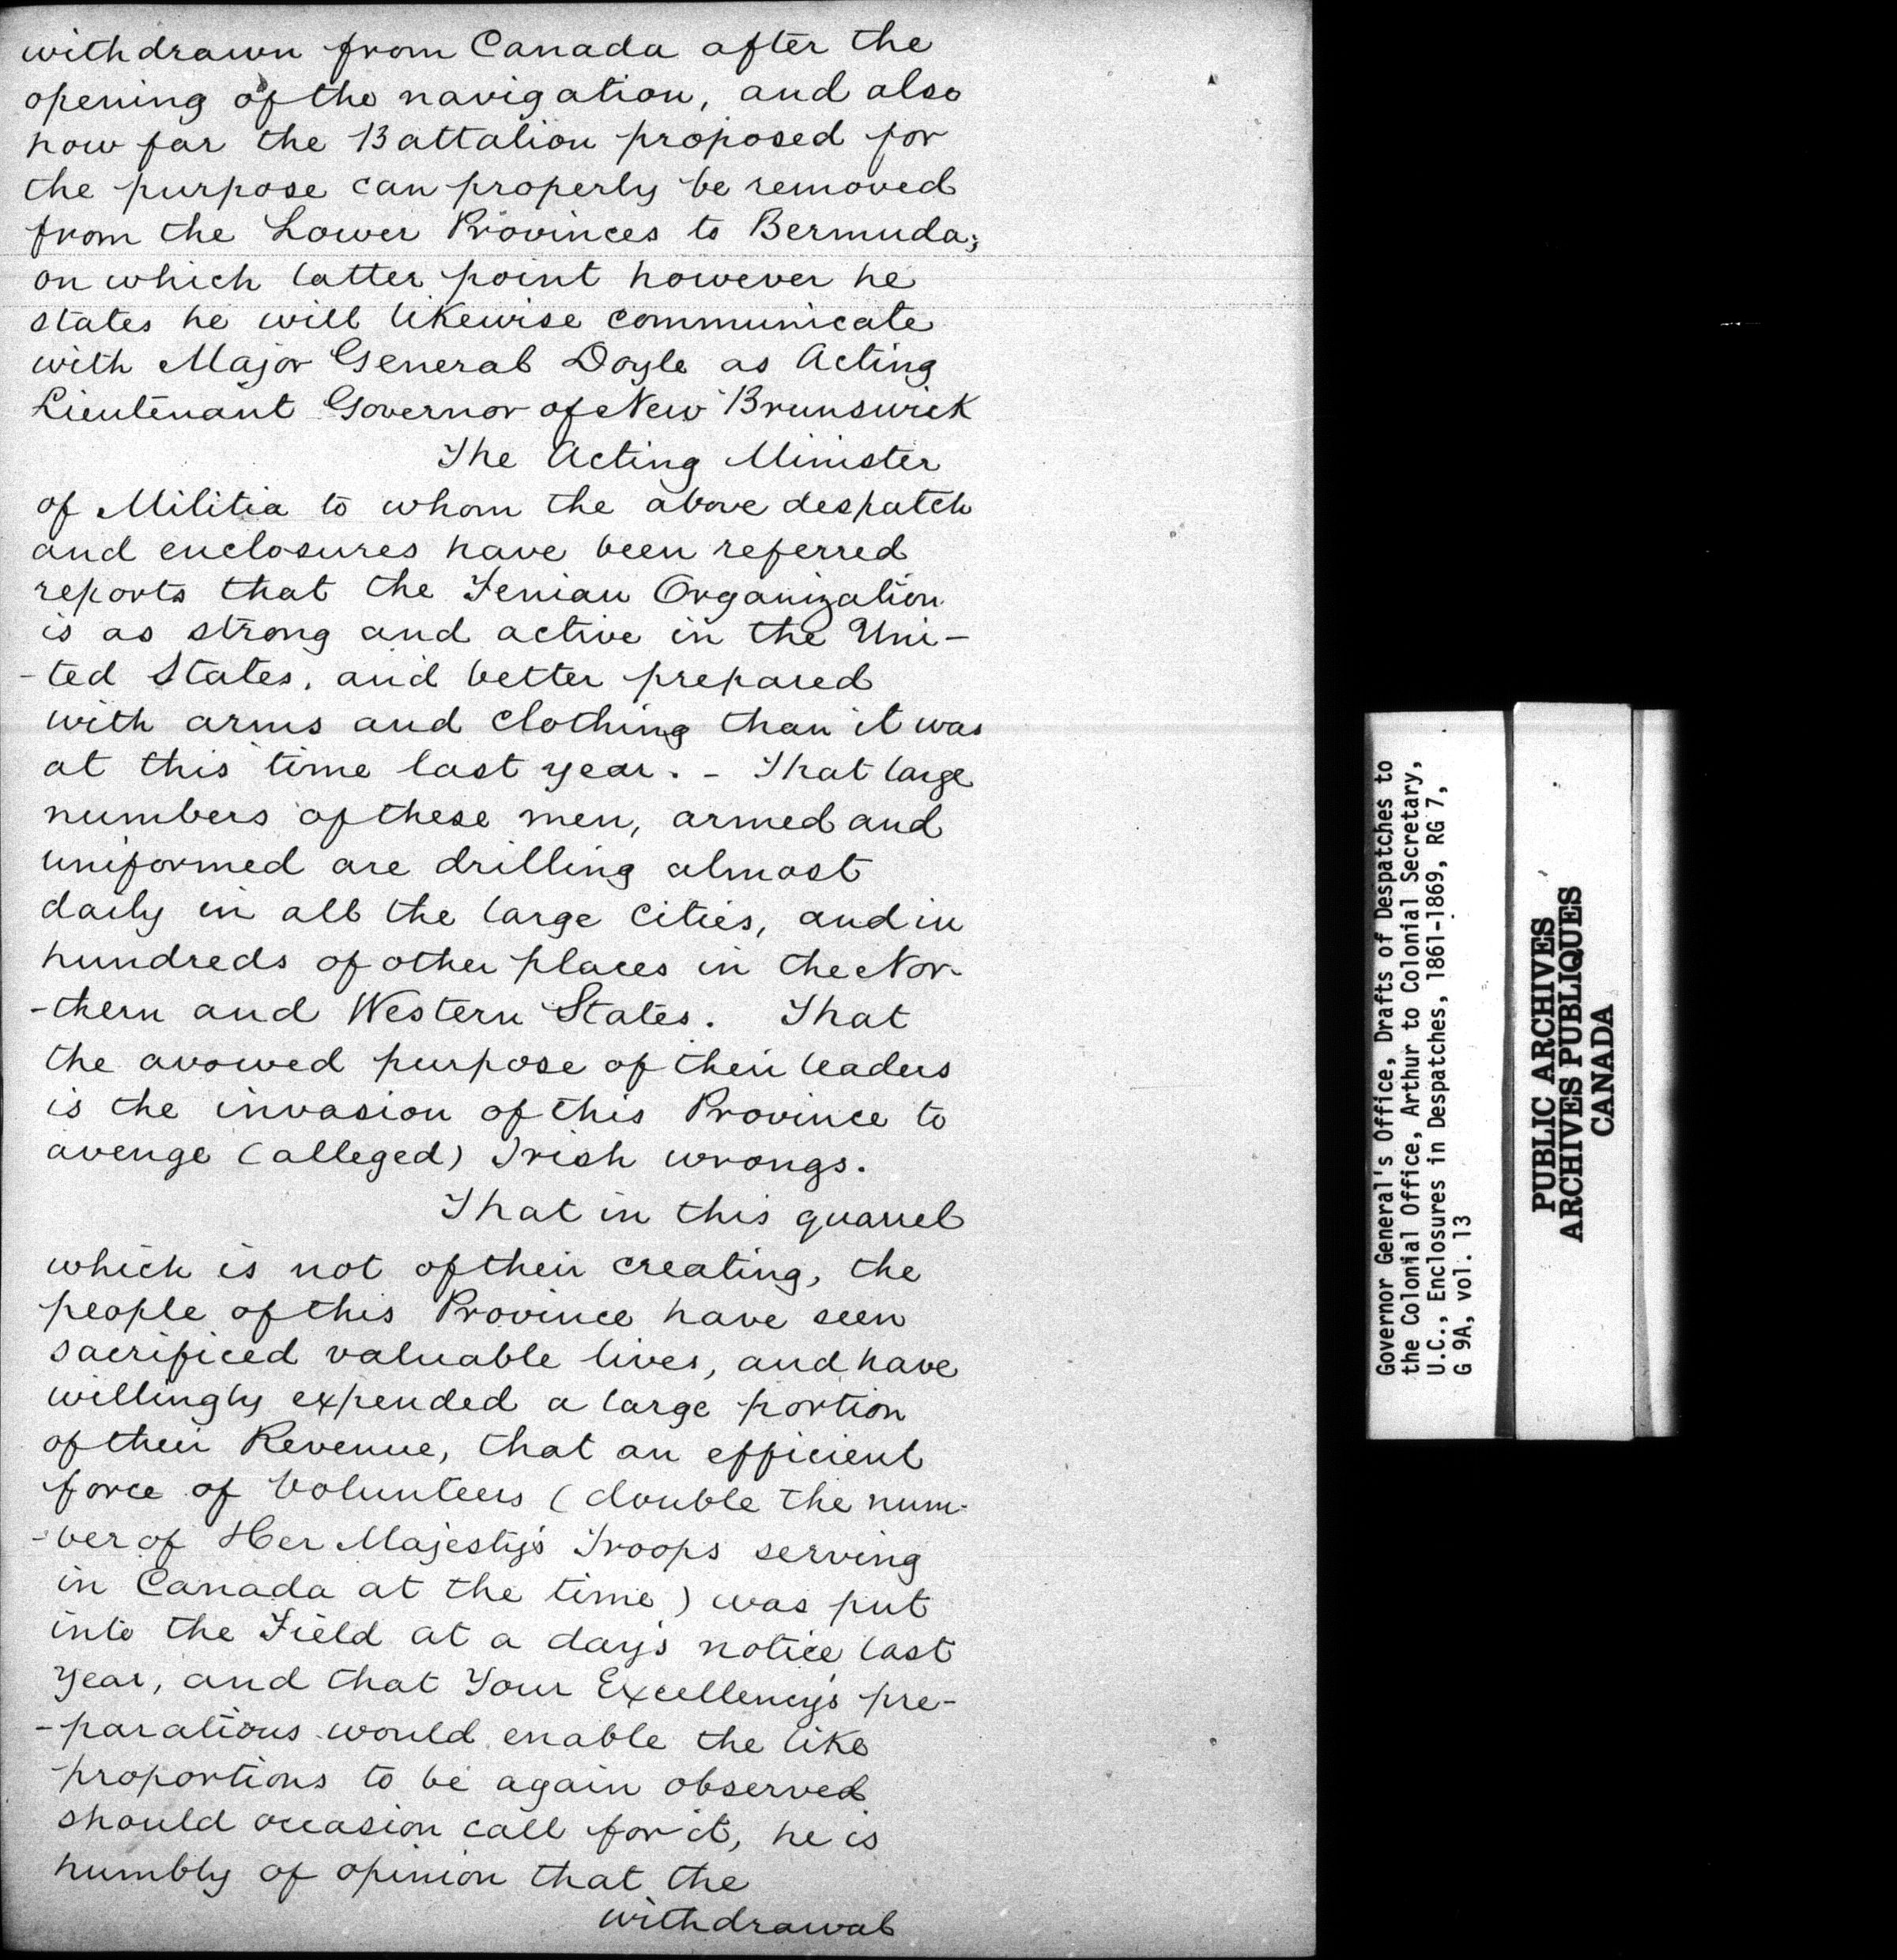 withdrawn from Canada after the
opening of the navigation, and also
how far the Battalion proposed for
the purpose can properly be removed
from the Lower Provinces to Bermuda;
on which latter point however he
states he will likewise communicate
with Major General Doyle as Acting
Lieutenant Governor of New Brunswick
The Acting Minister
of Militia to whom the above despatch
and enclosures have been referred
reports that the Fenian Organization
is as strong and active in the Uni-
-ted States, and better prepared
with arms and clothing than it was
at this time last year. - That large
numbers of these men, armed and
uniformed are drilling almost
daily in all the large cities, and in
hundreds of other places in the Nor-
-thern and Western States. That
the avowed purpose of their leaders
is the invasion of this Province to
avenge (alleged) Irish wrongs.
That in this quarrel
which is not of their creating, the
people of this Province have seen
sacrificed valuable lives, and have
willingly expended a large portion
of their Revenue, that an efficient
force of Volunteers (double the num-
-ber of Her Majesty's Troops serving
in Canada at the time) was put
into the Field at a day's notice last
year, and that Your Excellency's pre-
-parations would enable the like
proportions to be again observed
should occasion call for it, he is
humbly of opinion that the
withdrawal
Governor General's Office, Drafts of Despatches to
the Colonial Office, Arthur to Colonial Secretary,
U.C., Enclosures in Despatches, 1861-1869, RG 7,
G 9A, vol. 13
PUBLIC ARCHIVES
ARCHIVES PUBLIQUES
CANADA